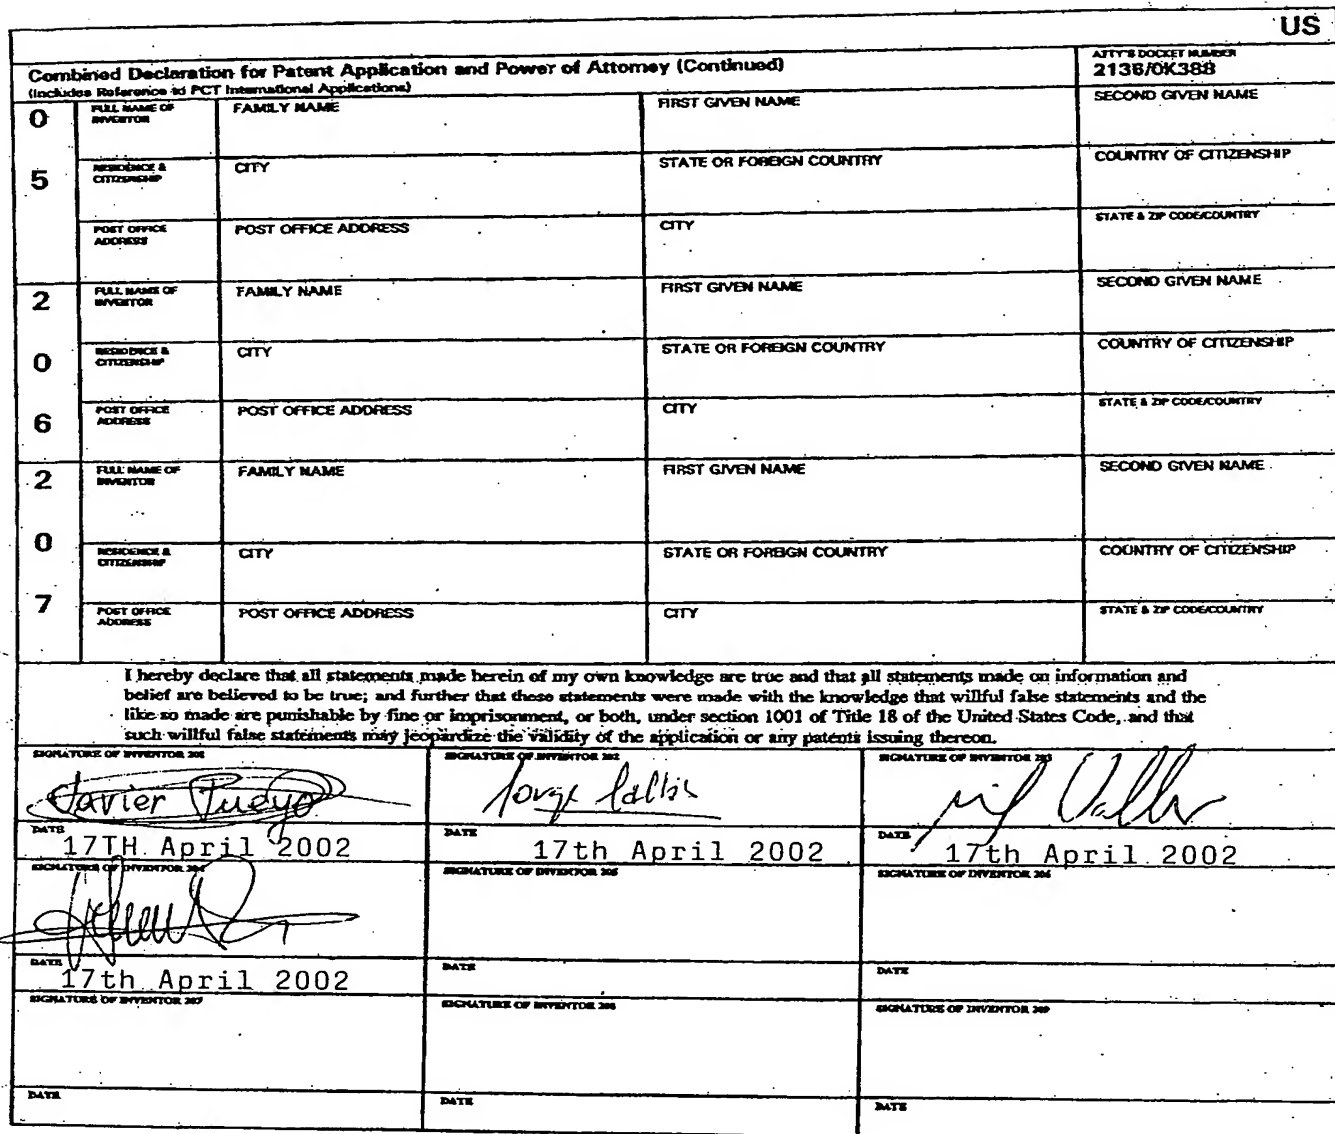 US
Combined Declaration for Patent Application and Power of Attorney (Continued)
(Includes Reference to PCT International Applications)
ATTY'S DOCKET NUMBER
2136/0K388
0
FULL NAME OF INVENTOR
FAMILY NAME
FIRST GIVEN NAME
SECOND GIVEN NAME
5
RESIDENCE & CITIZENSHIP
CITY
STATE OR FOREIGN COUNTRY
COUNTRY OF CITIZENSHIP
POST OFFICE ADDRESS
POST OFFICE ADDRESS
CITY
STATE & ZIP CODE/COUNTRY
2
FULL NAME OF INVENTOR
FAMILY NAME
FIRST GIVEN NAME
SECOND GIVEN NAME
0
RESIDENCE & CITIZENSHIP
CITY
STATE OR FOREIGN COUNTRY
COUNTRY OF CITIZENSHIP
6
POST OFFICE ADDRESS
POST OFFICE ADDRESS
CITY
STATE & ZIP CODE/COUNTRY
2
FULL NAME OF INVENTOR
FAMILY NAME
FIRST GIVEN NAME
SECOND GIVEN NAME
0
RESIDENCE & CITIZENSHIP
CITY
STATE OR FOREIGN COUNTRY
COUNTRY OF CITIZENSHIP
7
POST OFFICE ADDRESS
POST OFFICE ADDRESS
CITY
STATE & ZIP CODE/COUNTRY
I hereby declare that all statements made herein of my own knowledge are true and that all statements made on information and
belief are believed to be true; and further that these statements were made with the knowledge that willful false statements and the
like so made are punishable by fine or imprisonment, or both, under section 1001 of Title 18 of the United States Code, and that
such willful false statements may jeopardize the validity of the application or any patents issuing thereon.
SIGNATURE OF INVENTOR 201
SIGNATURE OF INVENTOR 202
SIGNATURE OF INVENTOR 203
Javier Pueyo
Jorge
DATE
17TH April 2002
DATE
17th April 2002
DATE
17th April 2002
SIGNATURE OF INVENTOR 204
SIGNATURE OF INVENTOR 205
SIGNATURE OF INVENTOR 206
DATE
17th April 2002
DATE
DATE
SIGNATURE OF INVENTOR 207
SIGNATURE OF INVENTOR 208
SIGNATURE OF INVENTOR 209
DATE
DATE
DATE